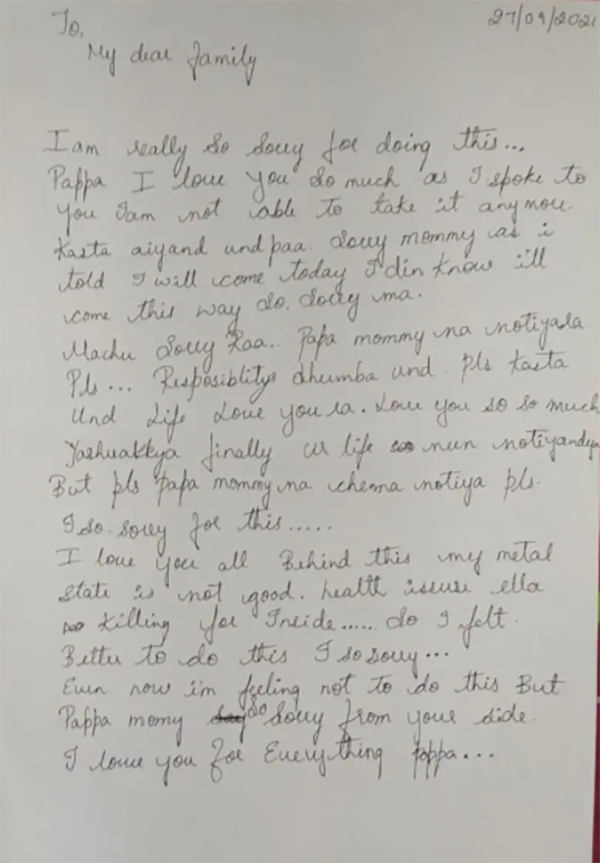 27/09/2021
To,
My dear family
I am really so sorry for doing this...
Pappa I love you so much as I spoke to
you Iam not able to take it anymore.
Kasta aiyand und paa. Sorry mommy as i
told I will come today I din know i'll
come this way so. Sorry ma.
Machu Sorry Raa.. Papa mommy na notiyala
Pls... Resposiblitys dhumba und. pls Kasta
Und life Love you ra. Love you so so much
Yashuakkya finally ur life neen notiyandiya
But pls papa mommy na chenna notiya pls.
I so. sorry for this.....
I love you all Behind this my metal
state is not good. health issuse ella
killing for Inside...... So I felt.
Better to do this I so sorry...
Even now i'm feeling not to do this But
Pappa momy so Sorry from your side.
I love you for Everything pappa...